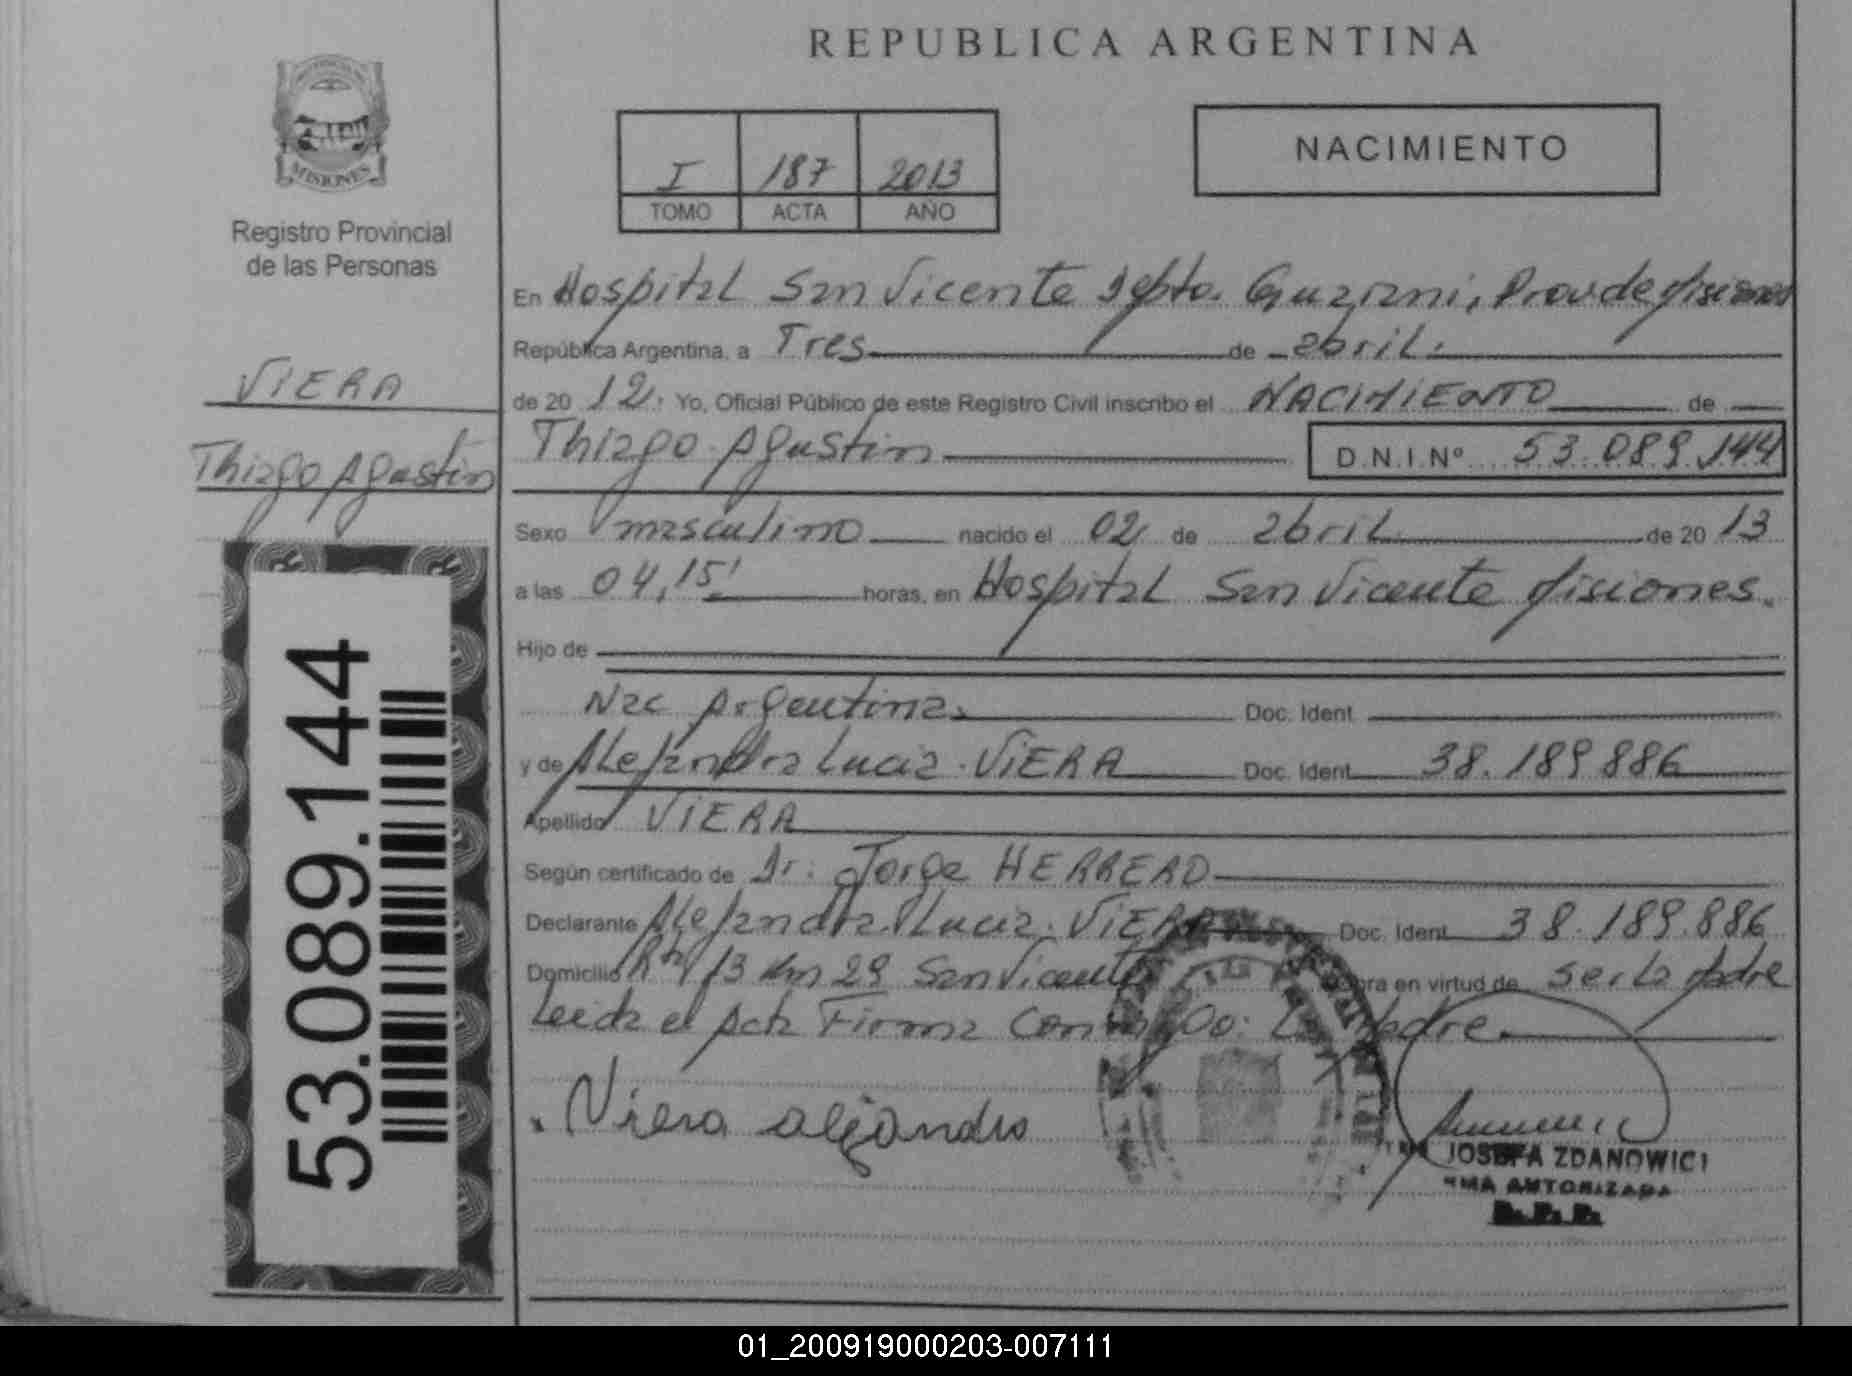 REPUBLICA ARGENTINA
MISIONES
Registro Provincial
de las Personas
I 187 2013
TOMO ACTA AÑO
NACIMIENTO
VIERA
Thiago Agustin
53.089.144
En Hospital San Vicente Depto. Guarani, Prov. de Misiones
República Argentina, a Tres de abril.
de 2012. Yo, Oficial Público de este Registro Civil inscribo el NACIMIENTO de
Thiago Agustin D.N.I.Nº 53.089.144
Sexo masculino nacido el 02 de abril de 2013
a las 04,15' horas, en Hospital San Vicente Misiones.
Hijo de
Nac Argentina. Doc. Ident
y de Alejandra Lucia VIERA Doc. Ident 38.189.886
Apellido VIERA
Según certificado de Dr: Jorge HERRERO
Declarante Alejandra Lucia VIERA Doc. Ident 38.189.886
Domicilio Rta 13 Km 29 San Vicente obra en virtud de ser La Madre
Leida el Acta Firma La Madre.
Viera alejandra
JOSEFA ZDANOWICZ
FIRMA AUTORIZADA
R.P.P.
01_200919000203-007111